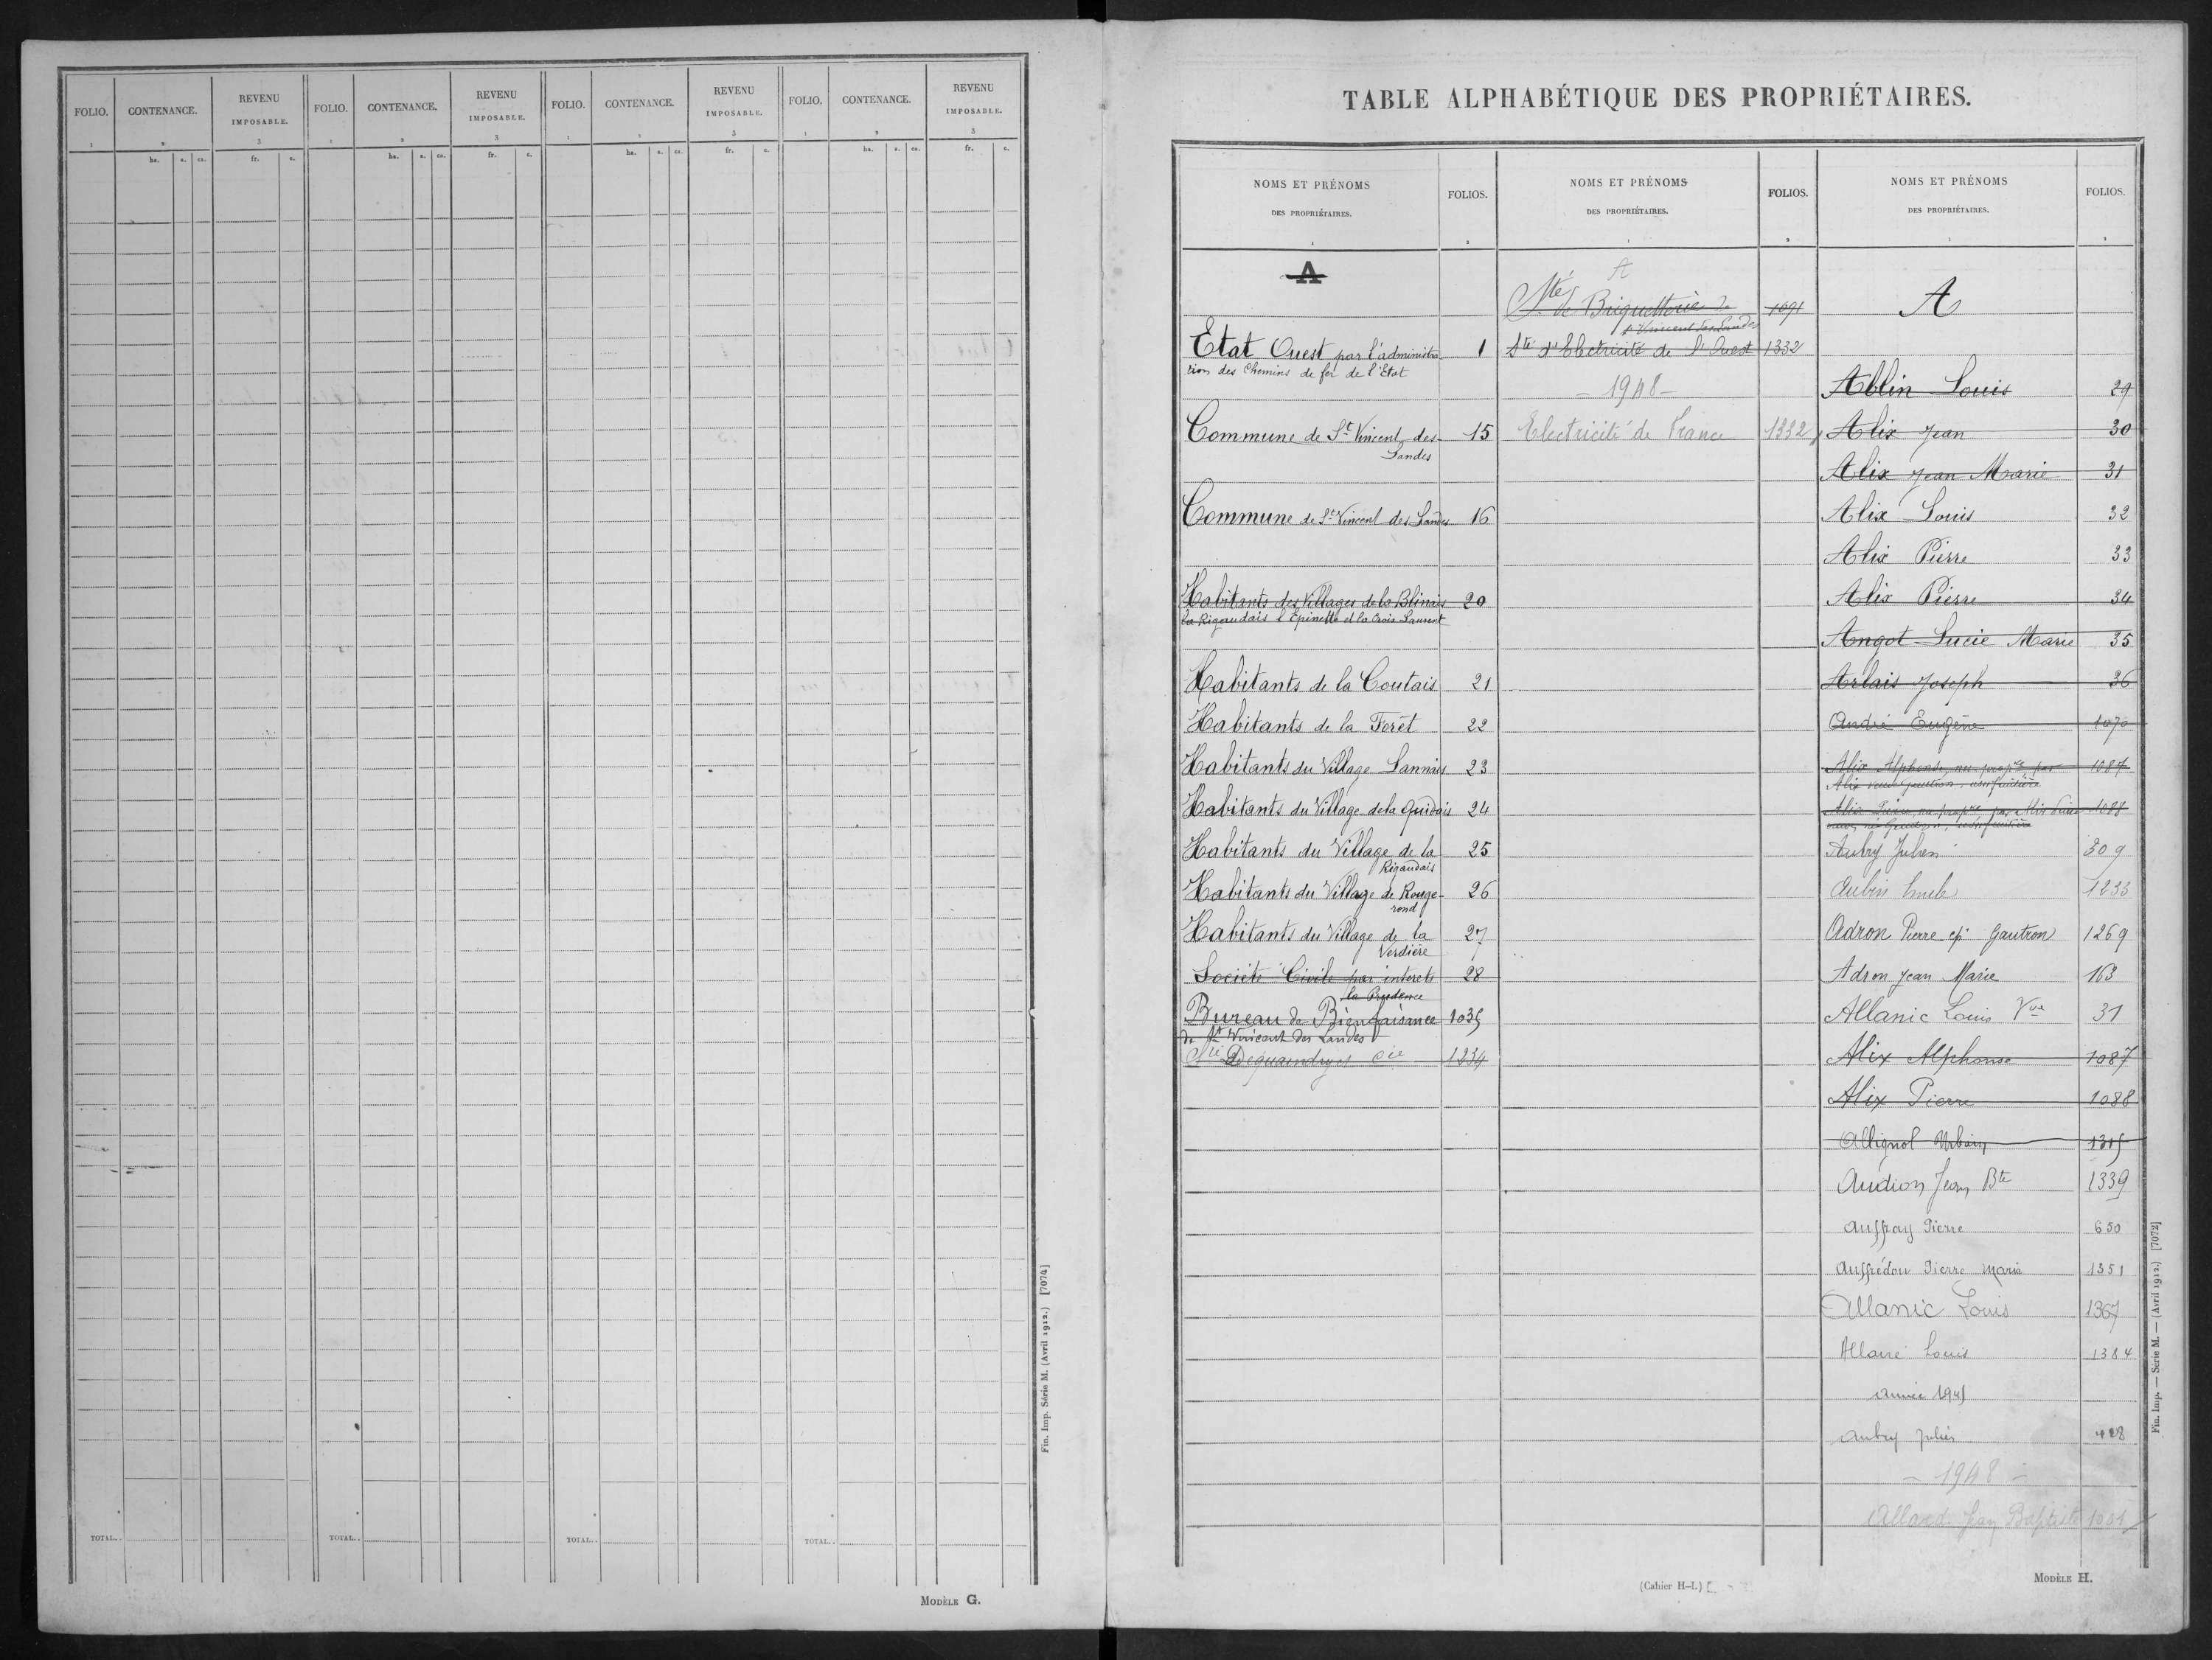 FOLIO. CONTENANCE. REVENU IMPOSABLE. FOLIO. CONTENANCE. REVENU IMPOSABLE. FOLIO. CONTENANCE. REVENU IMPOSABLE. FOLIO. CONTENANCE. REVENU IMPOSABLE.
1 2 3 1 2 3 1 2 3 1 2 3
ha. a. ca. fr. c. ha. a. ca. fr. c. ha. a. ca. fr. c. ha. a. ca. fr. c.
TOTAL.. TOTAL.. TOTAL.. TOTAL..
Fin. Imp. Série M. (Avril 1912.) [7074]
MODÈLE G.
TABLE ALPHABÉTIQUE DES PROPRIÉTAIRES.
NOMS ET PRÉNOMS DES PROPRIÉTAIRES. FOLIOS. NOMS ET PRÉNOMS DES PROPRIÉTAIRES. FOLIOS. NOMS ET PRÉNOMS DES PROPRIÉTAIRES. FOLIOS.
1 2 1 2 1 2
A
Etat Ouest par l'administra- 1
tion des Chemins de fer de l'Etat
Commune de St Vincent des- 15
Landes
Commune de St Vincent des Landes 16
Habitants des Villages de la Blinais 20
la Rigaudais l'Epinette et la Croix Laurent
Habitants de la Coutais 21
Habitants de la Forêt 22
Habitants du Village Lannais 23
Habitants du Village de la Guidais 24
Habitants du Village de la 25
Rigaudais
Habitants du Village de Rouge- 26
rond
Habitants du Village de la 27
Verdière
Société Civile par intérêts 28
la Prudence
Bureau de Bienfaisance 1035
de St Vincent des Landes
Sté et Cie 1234
A
Sté de Briquetterie de 1091
St Vincent des Landes
Sté d'Electricité de l'Ouest 1332
- 1948 -
Electricité de France 1332
A
Ablin Louis 29
Alix Jean 30
Alix Jean Marie 31
Alix Louis 32
Alix Pierre 33
Alix Pierre 34
Angot Lucie Marie 35
Arlais Joseph 36
André Eugène 1070
Alix Alphonse, nu-propre par 1087
Alix usufruitière
Alix Pierre, nu-propre par Alix 1088
usufruitière
Aubry Julien 809
Aubin Emile 1233
Adron Pierre ép. Gautron 1269
Adron Jean Marie 163
Allanic Louis Vve 31
Alix Alphonse 1087
Alix Pierre 1088
Allignol Urbain 1315
Audion Jean Bte 1339
Auffray Pierre 650
Auffrédou Pierre Marie 1351
Allanic Louis 1367
Allaire Louis 1384
année 1945
Aubry Julien 428
- 1948 -
Jean Baptiste
Fin. Imp. — Série M. — (Avril 1912.) [7072]
(Cahier H-I.)
MODÈLE H.